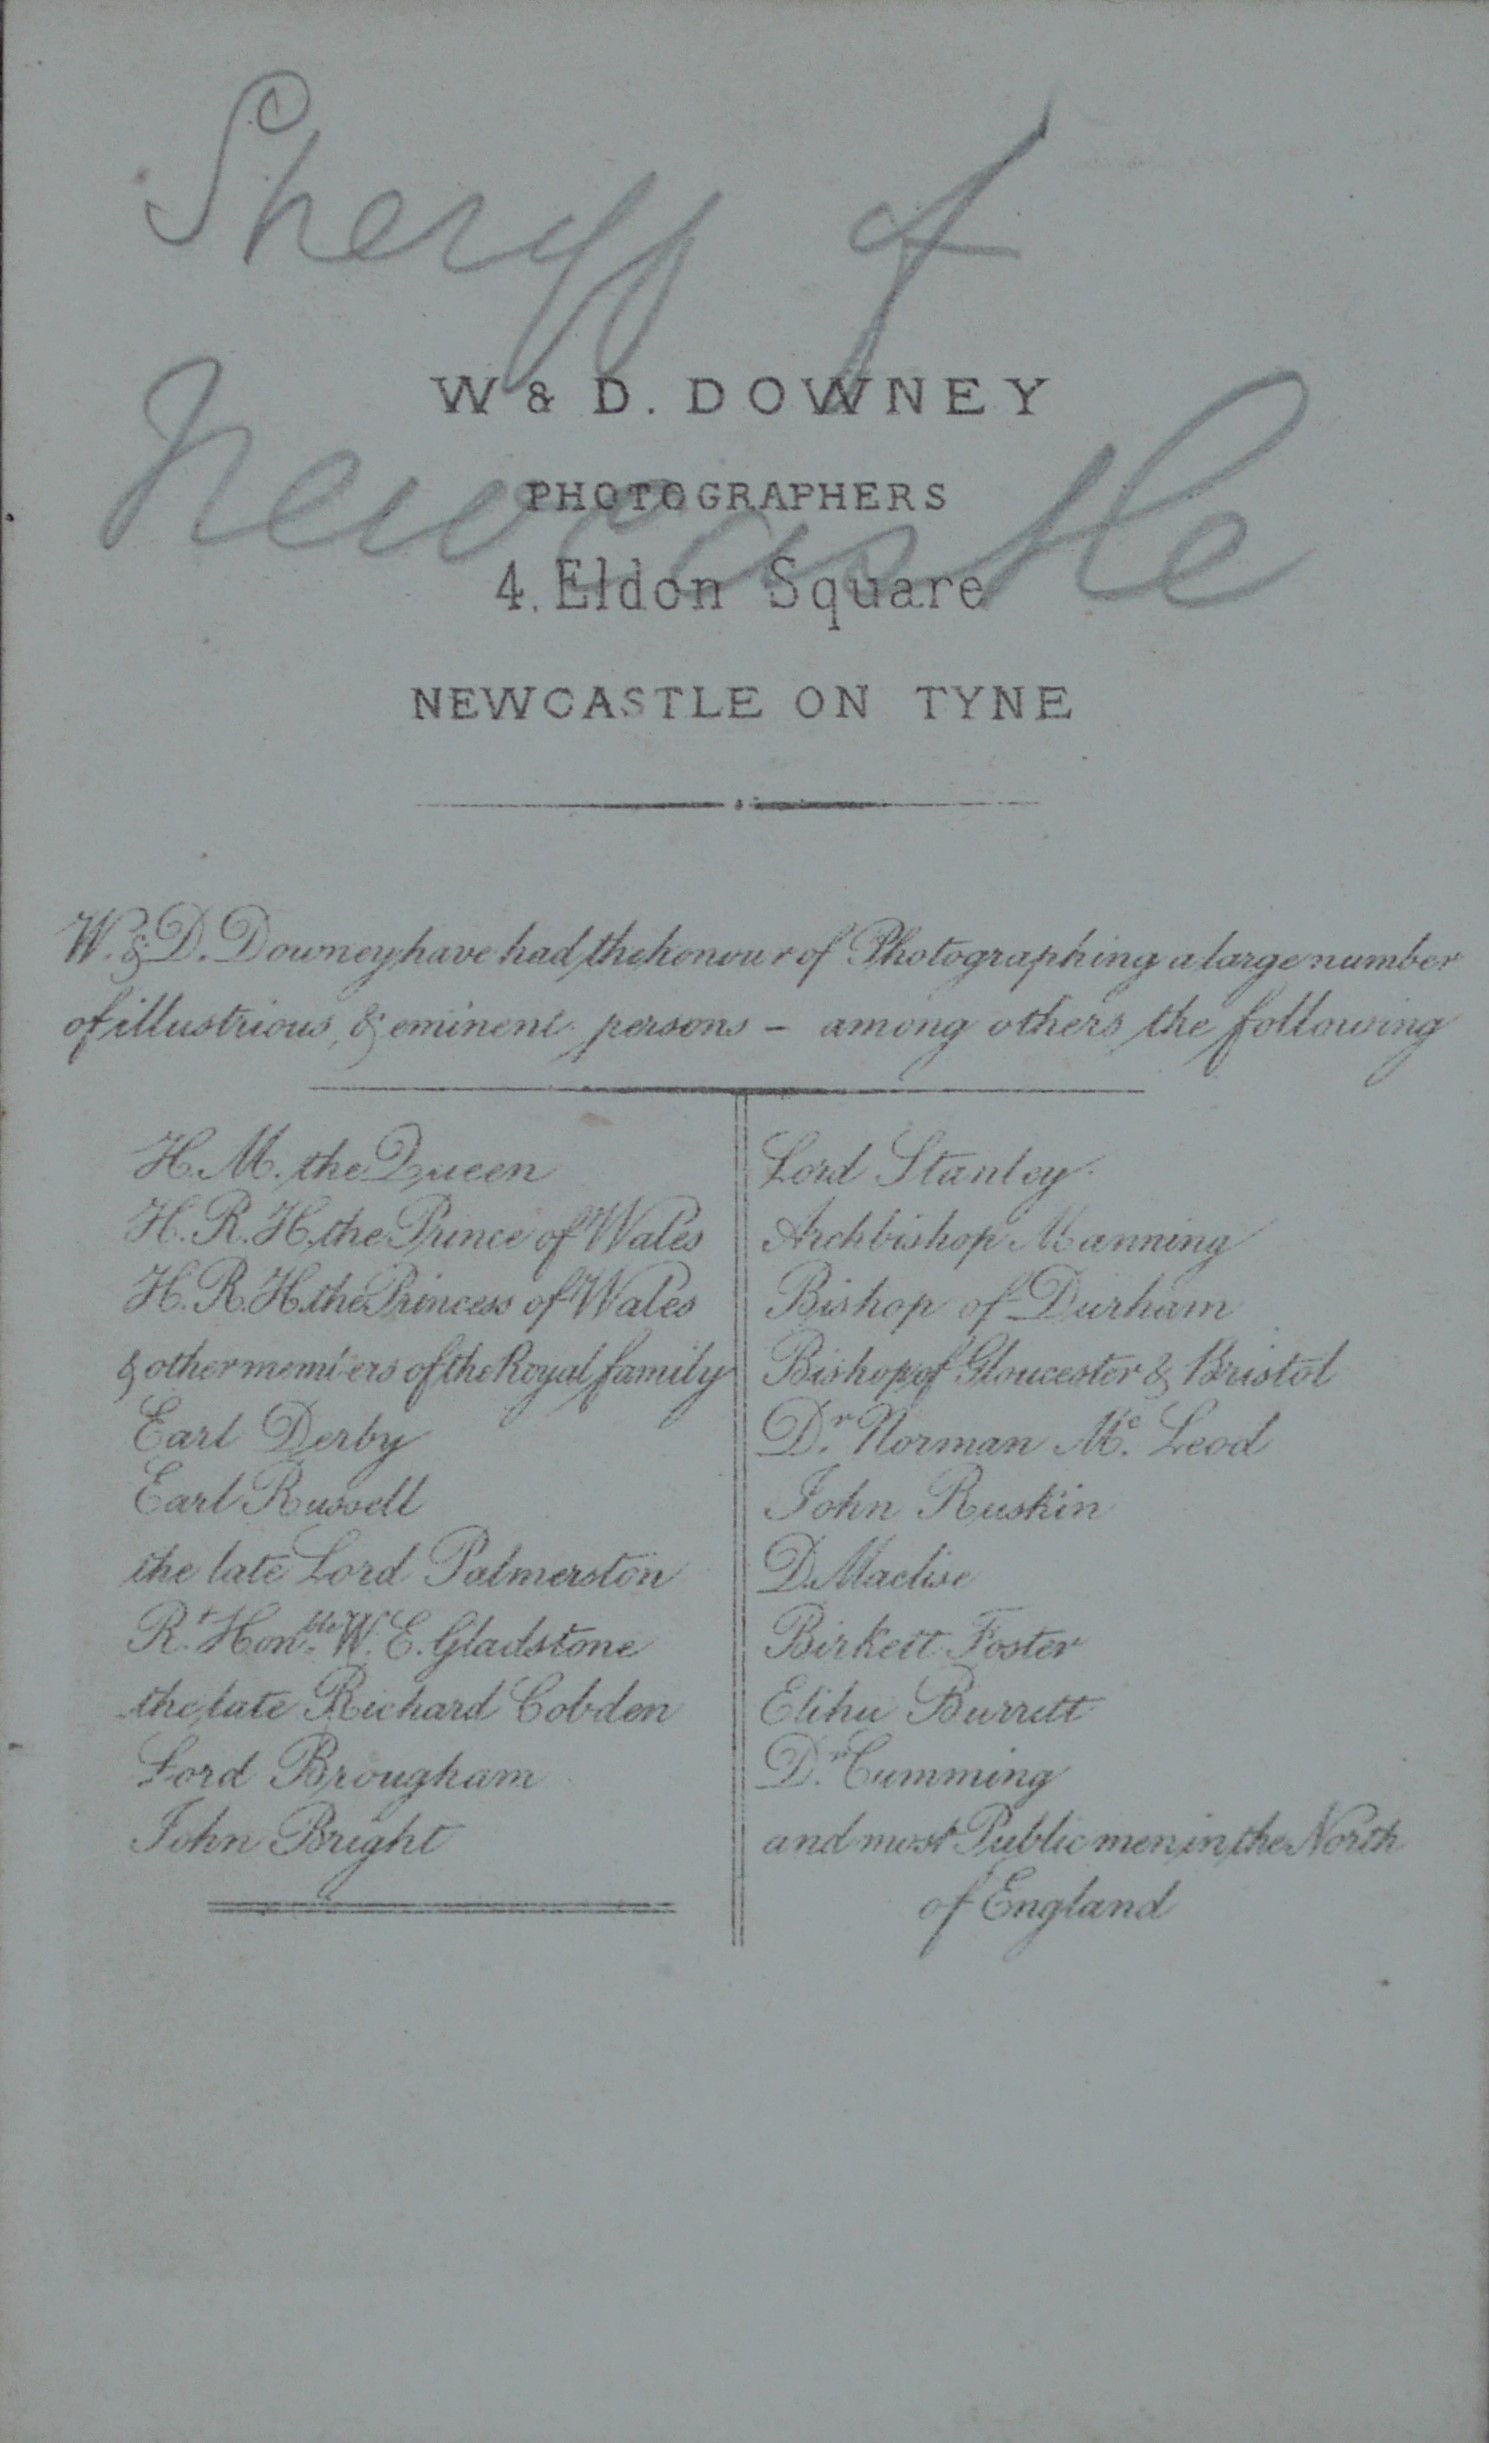 Sheriff of
Newcastle
W & D. DOWNEY
PHOTOGRAPHERS
4, Eldon Square
NEWCASTLE ON TYNE
W. & D. Downey have had the honour of Photographing a large number
of illustrious, & eminent persons – among others the following
H. M. the Queen
H. R. H. the Prince of Wales
H. R. H. the Princess of Wales
& other members of the Royal family
Earl Derby
Earl Russell
the late Lord Palmerston
Rt. Honble. W. E. Gladstone
the late Richard Cobden
Lord Brougham
John Bright
Lord Stanley
Archbishop Manning
Bishop of Durham
Bishop of Gloucester & Bristol
Dr. Norman Mc. Leod
John Ruskin
D. Maclise
Birkett Foster
Elihu Burritt
Dr. Cumming
and most Public men in the North
of England